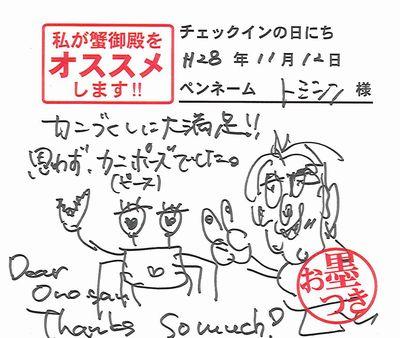 私が蟹御殿を
オススメ
します!!
チェックインの日にち
H28年11月12日
ペンネーム トミシン 様
カニづくしに大満足!!
思わず、カニポーズでした。
(ピース)
Dear
Ono san
Thanks So much!
お墨つき